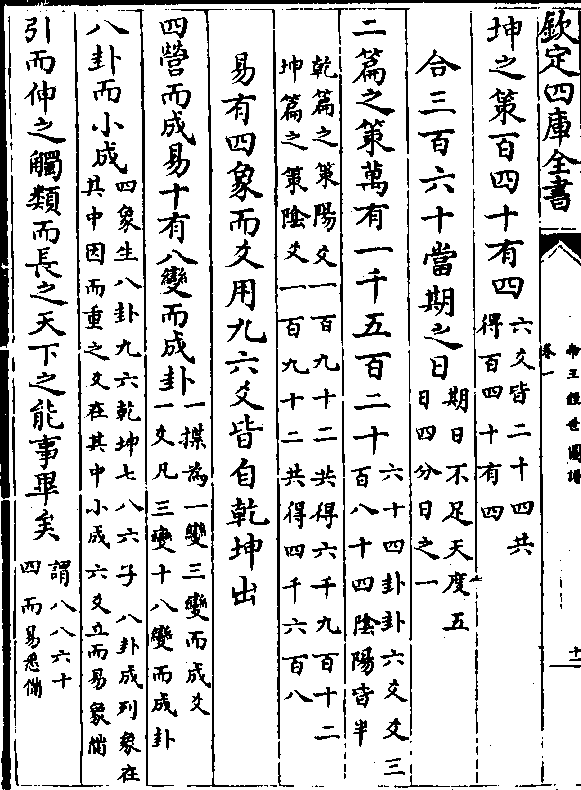 欽定四庫全書
帝王經世圖譜
卷一
坤之策百四十有四
六爻皆二十四共
得百四十有四
合三百六十當期之日
期日不足天度五
日四分日之一
二篇之策萬有一千五百二十
六十四卦卦六爻爻三
百八十四陰陽皆半
乾篇之策陽爻一百九十二共得六千九百十二
坤篇之策陰爻一百九十二共得四千六百八
易有四象而爻用九六爻皆自乾坤出
四營而成易十有八變而成卦
一揲為一變三變而成爻
一爻凡三變十八變而成卦
八卦而小成
四象生八卦九六乾坤七八六子八卦成列象在
其中因而重之爻在其中小成六爻立而易象備
引而伸之觸類而長之天下之能事畢矣
謂八八六十
四而易悉備